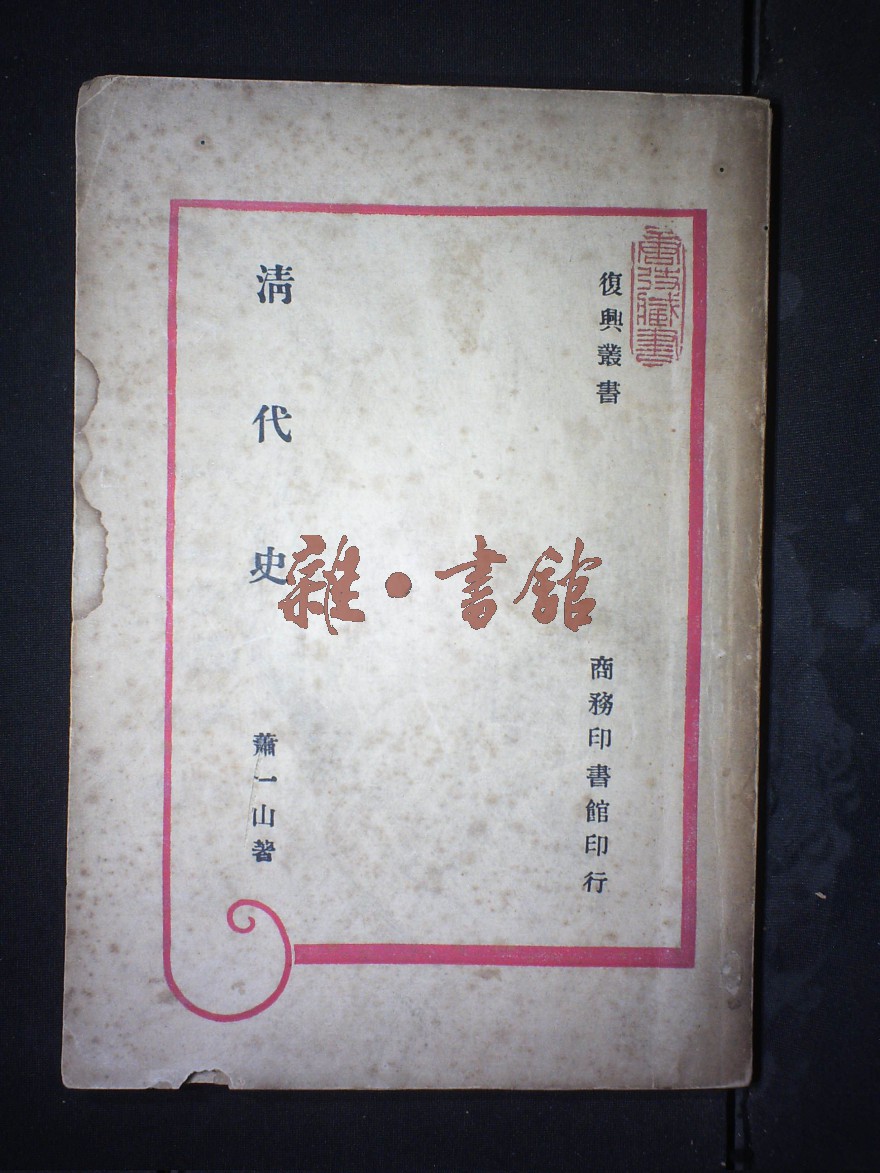 復興叢書
清代史
蕭一山著
商務印書館印行
雜·書館